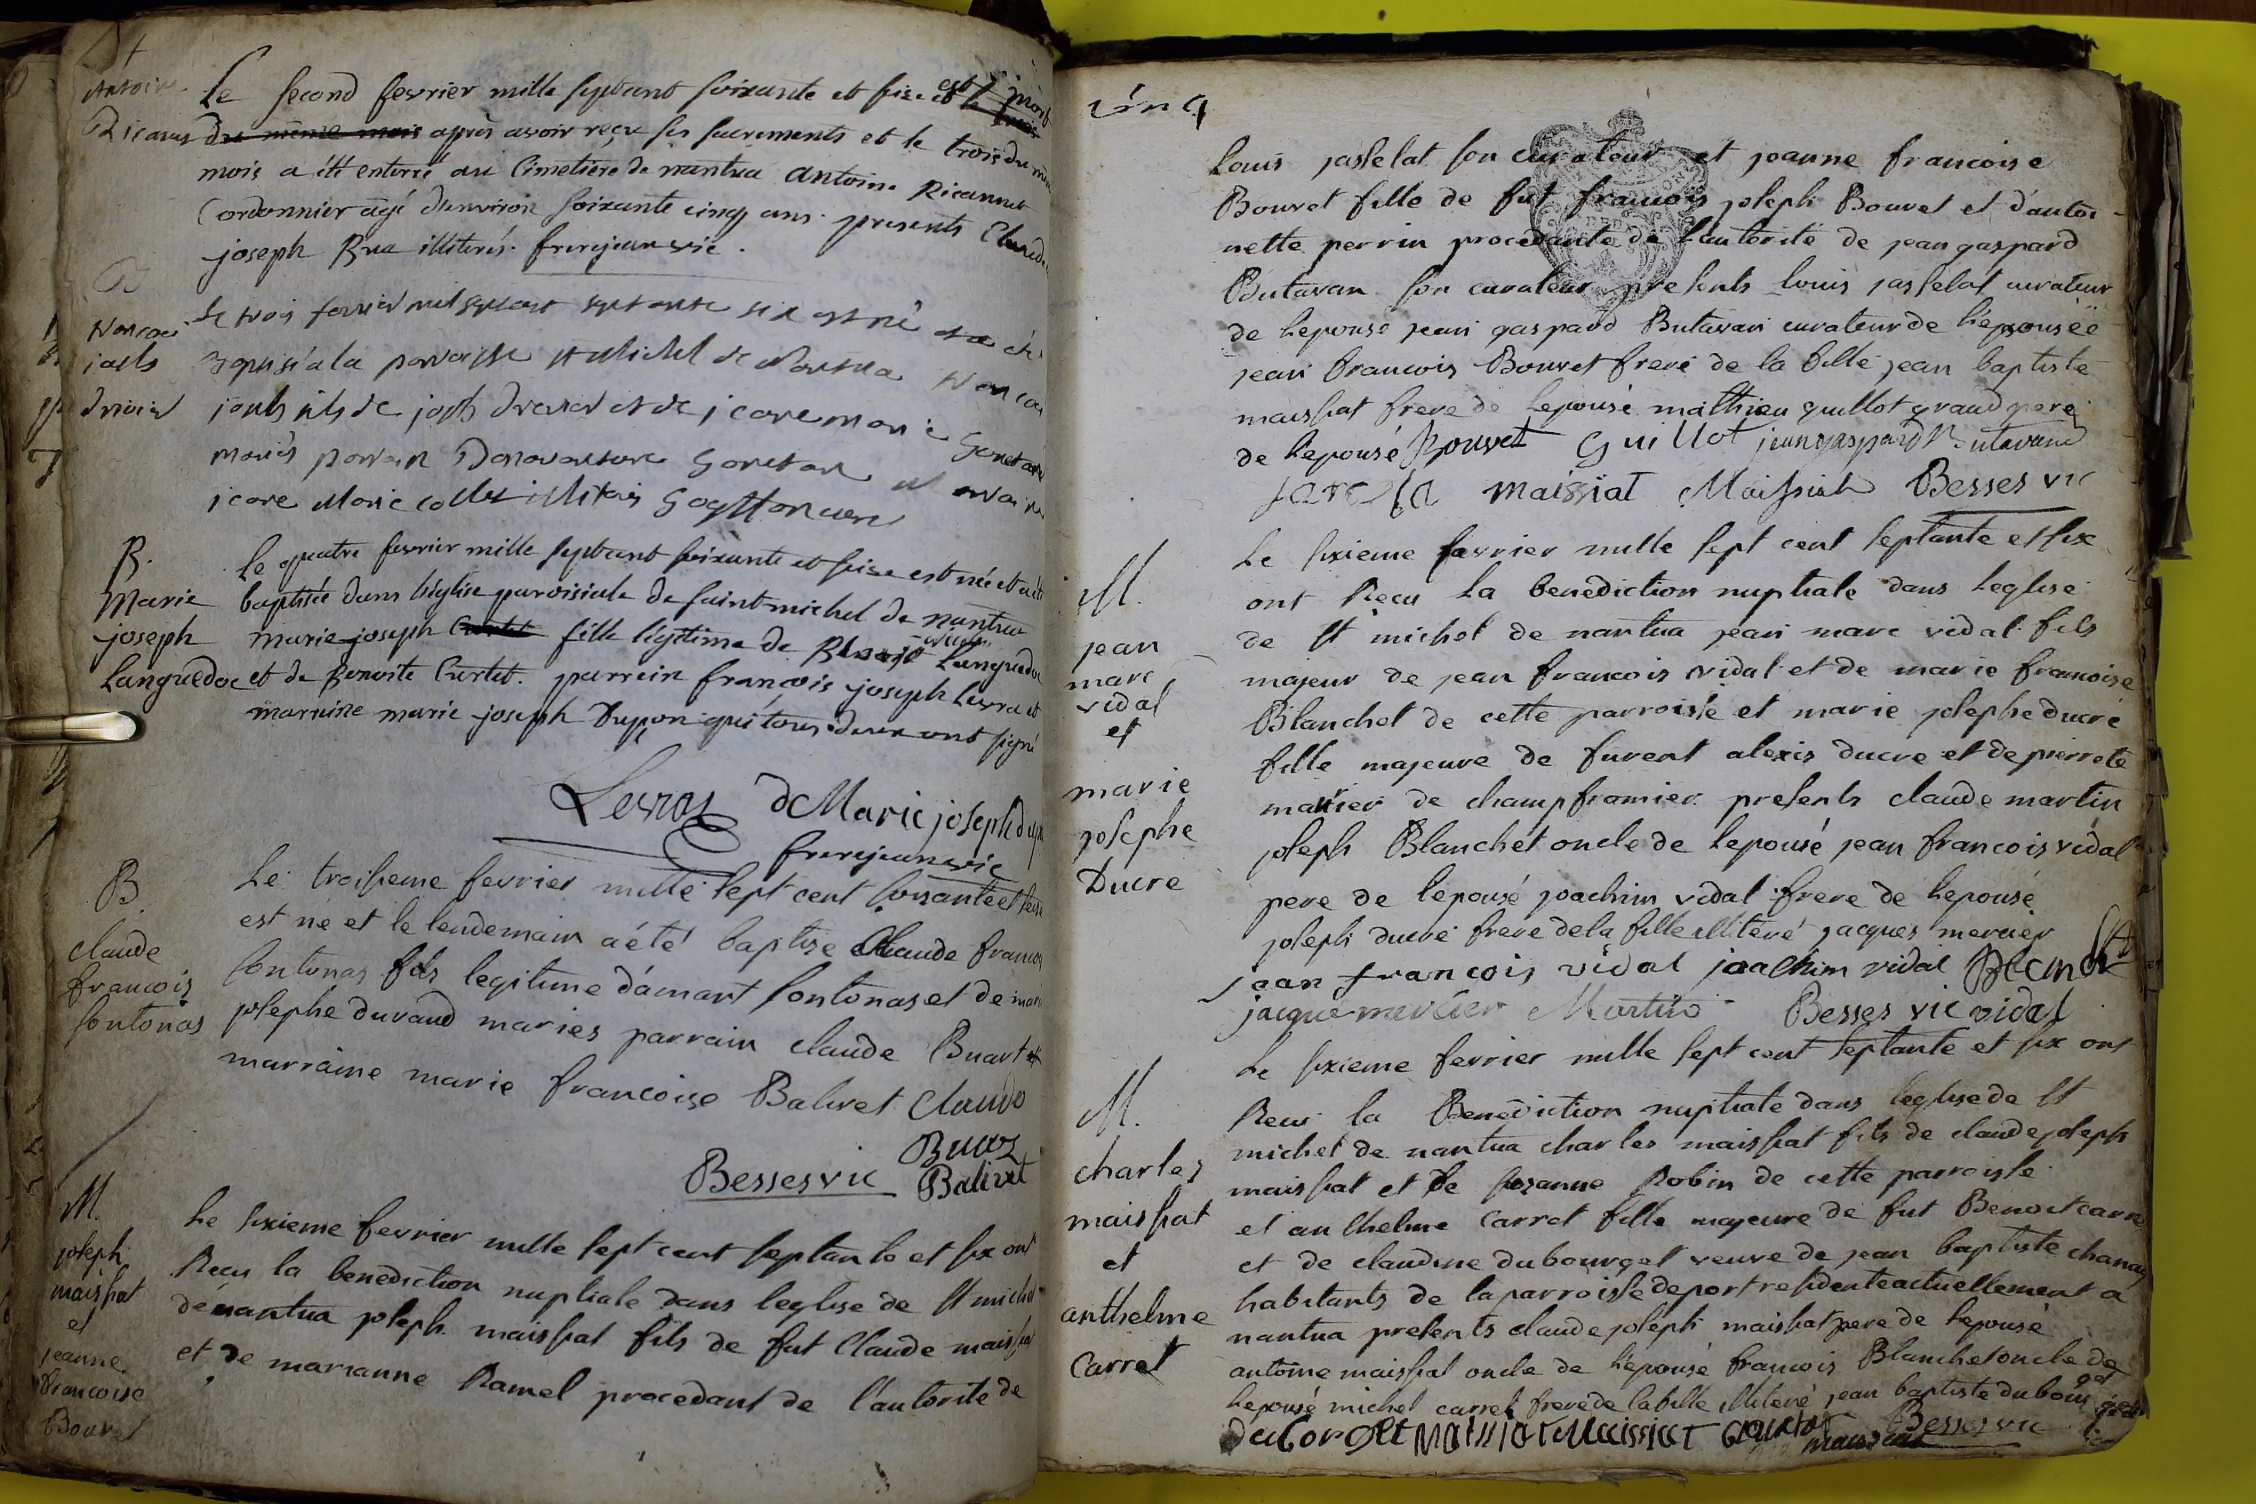 Antoine
Ricanet
Le second fevrier mille septcent soixante et seize est mort
du même mois après avoir reçu ses sacrements et le trois du
mois a été enterré au Cimetière de nantua antoine Ricannet
Cordonnier agé d'environ soixante cinq ans. presents Claude
joseph Rua illiterés. frerejean vic.
B
le trois fevrier mil sept cent septante six est né et a été
baptisé a la paroisse st Michel de Nantua
de
mariés
marie
R.
Marie
joseph
Languedoc
Le quatre fevrier mille septcent soixante et seize est née et a été
baptisée dans l'église paroisiale de saint michel de nantua
marie joseph fille légitime de Languedoc
et de Benoite Curtet. parrein françois joseph Levrat et
marraine marie joseph Dupon qui tous deux ont signé
Levrat Marie joseph
frerejean vic
B.
claude
francois
sontonas
Le troisieme fevrier mille sept cent soixante et seize
est né et le lendemain a été baptise Claude francois
sontonas fils legitime d'amant sontonas et de marie
josephe durand maries parrain claude Buart et
marraine marie francoise Balivet Claude
Buaz
Besses vic Balivet
M.
joseph
maissiat
et
jeanne
francoise
Bouvet
Le sixieme fevrier mille sept cent septante et six ont
Recu la benediction nuptiale dans leglise de st michel
de nantua joseph maissiat fils de fut Claude maissiat
et de marianne Ramel procedant de l'autorité de
cinq
Louis jasselat son curateur et jeanne francoise
Bouvet fille de fut francois joseph Bouvet et d'antoi-
nette perrin procedante de l'autorité de jean gaspard
Butavan son curateur presents louis jasselat curateur
de lepouse jean gaspard Butavan curateur de l'epousée
jean francois Bouvet frere de la fille jean baptiste
maissiat frere de lepousé mathieu guillot grand pere
de lepousé Bouvet Guillot jean gaspard Butavand
maissiat Maissiat Besses vic
M.
jean
marc
vidal
et
marie
josephe
Ducre
Le sixieme fevrier mille sept cent septante et six
ont Recu la benediction nuptiale dans leglise
de st michel de nantua jean marc vidal fils
majeur de jean francois vidal et de marie francoise
Blanchet de cette parroisse et marie josephe ducré
fille majeure de furent alexis ducre et de pierrete
marier de champfromier presents claude martin
joseph Blanchet oncle de lepousé jean francois vidal
pere de lepousé joachim vidal frere de lepousé
joseph ducré frere de la fille illiteré jacques mercier
jean francois vidal joachim vidal
jacque mercier Martin Besses vic vidal
M.
charles
maissiat
et
anthelme
Carret
Le sixieme fevrier mille sept cent septante et six ont
Recu la Benediction nuptiale dans leglise de st
michel de nantua charles maissiat fils de claude joseph
maissiat et de suzanne Robin de cette parroisse
et anthelme Carret fille majeure de fut Benoit carret
et de claudine dubourget veuve de jean baptiste chanay
habitants de la parroisse de port residente actuellement a
nantua presents claude joseph maissiat pere de lepousé
antoine maissiat oncle de lepousé francois Blanchet oncle de
lepousé michel carret frere de la fille illiteré jean baptiste dubourget
duborget Maissiat Maissiat Besses vic
maissiat